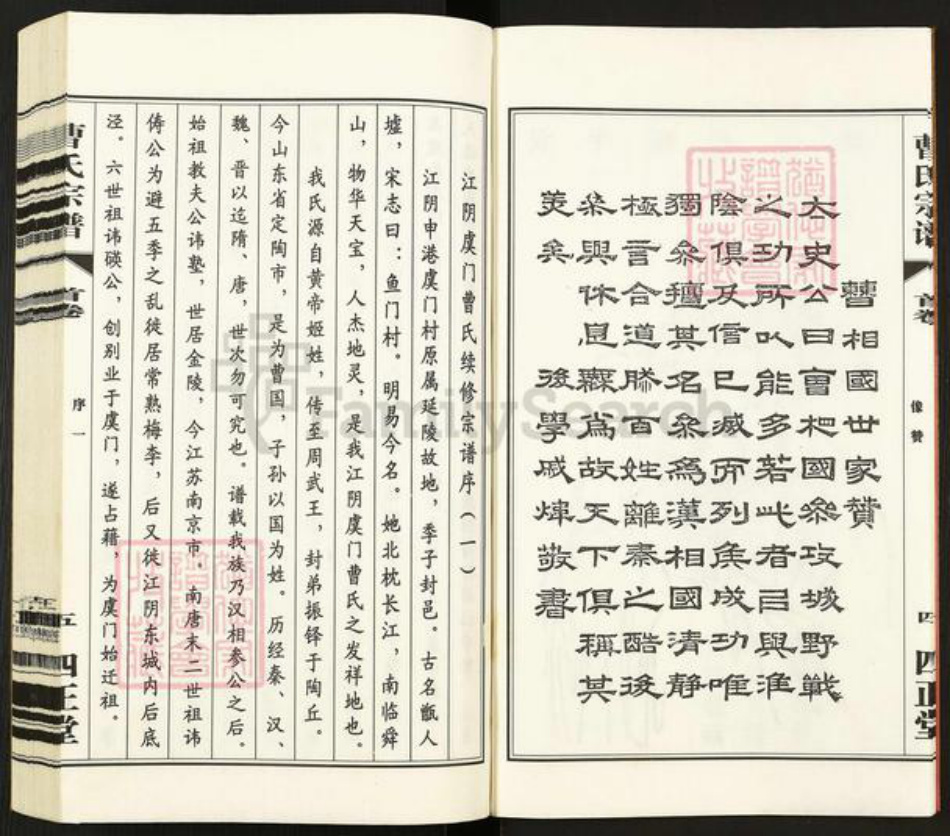 曹相國世家贊
太史公曰曹相國參攻城野戰
之功所以能多若此者以與淮
陰侯俱及信已滅而列侯成功唯
獨參擅其名參為漢相國清靜
極言合道然百姓離秦之酷後
參與休息無為故天下俱稱其
美矣
後學戚煒敬書
像贊
四
四正堂
曹氏宗谱
首卷
序一
五
四正堂
江阴虞门曹氏续修宗谱序(一)
江阴申港虞门村原属延陵故地,季子封邑。古名甑人
墟,宋志曰:鱼门村。明易今名。她北枕长江,南临舜
山,物华天宝,人杰地灵,是我江阴虞门曹氏之发祥地也。
我氏源自黄帝姬姓,传至周武王,封弟振铎于陶丘。
今山东省定陶市,是为曹国,子孙以国为姓。历经秦、汉、
魏、晋以迄隋、唐,世次勿可究也。谱载我族乃汉相参公之后。
始祖教夫公讳塾,世居金陵,今江苏南京市。南唐末二世祖讳
俦公为避五季之乱徙居常熟梅李,后又徙江阴东城内后底
泾。六世祖讳碤公,创别业于虞门,遂占藉,为虞门始迁祖。
FamilySearch